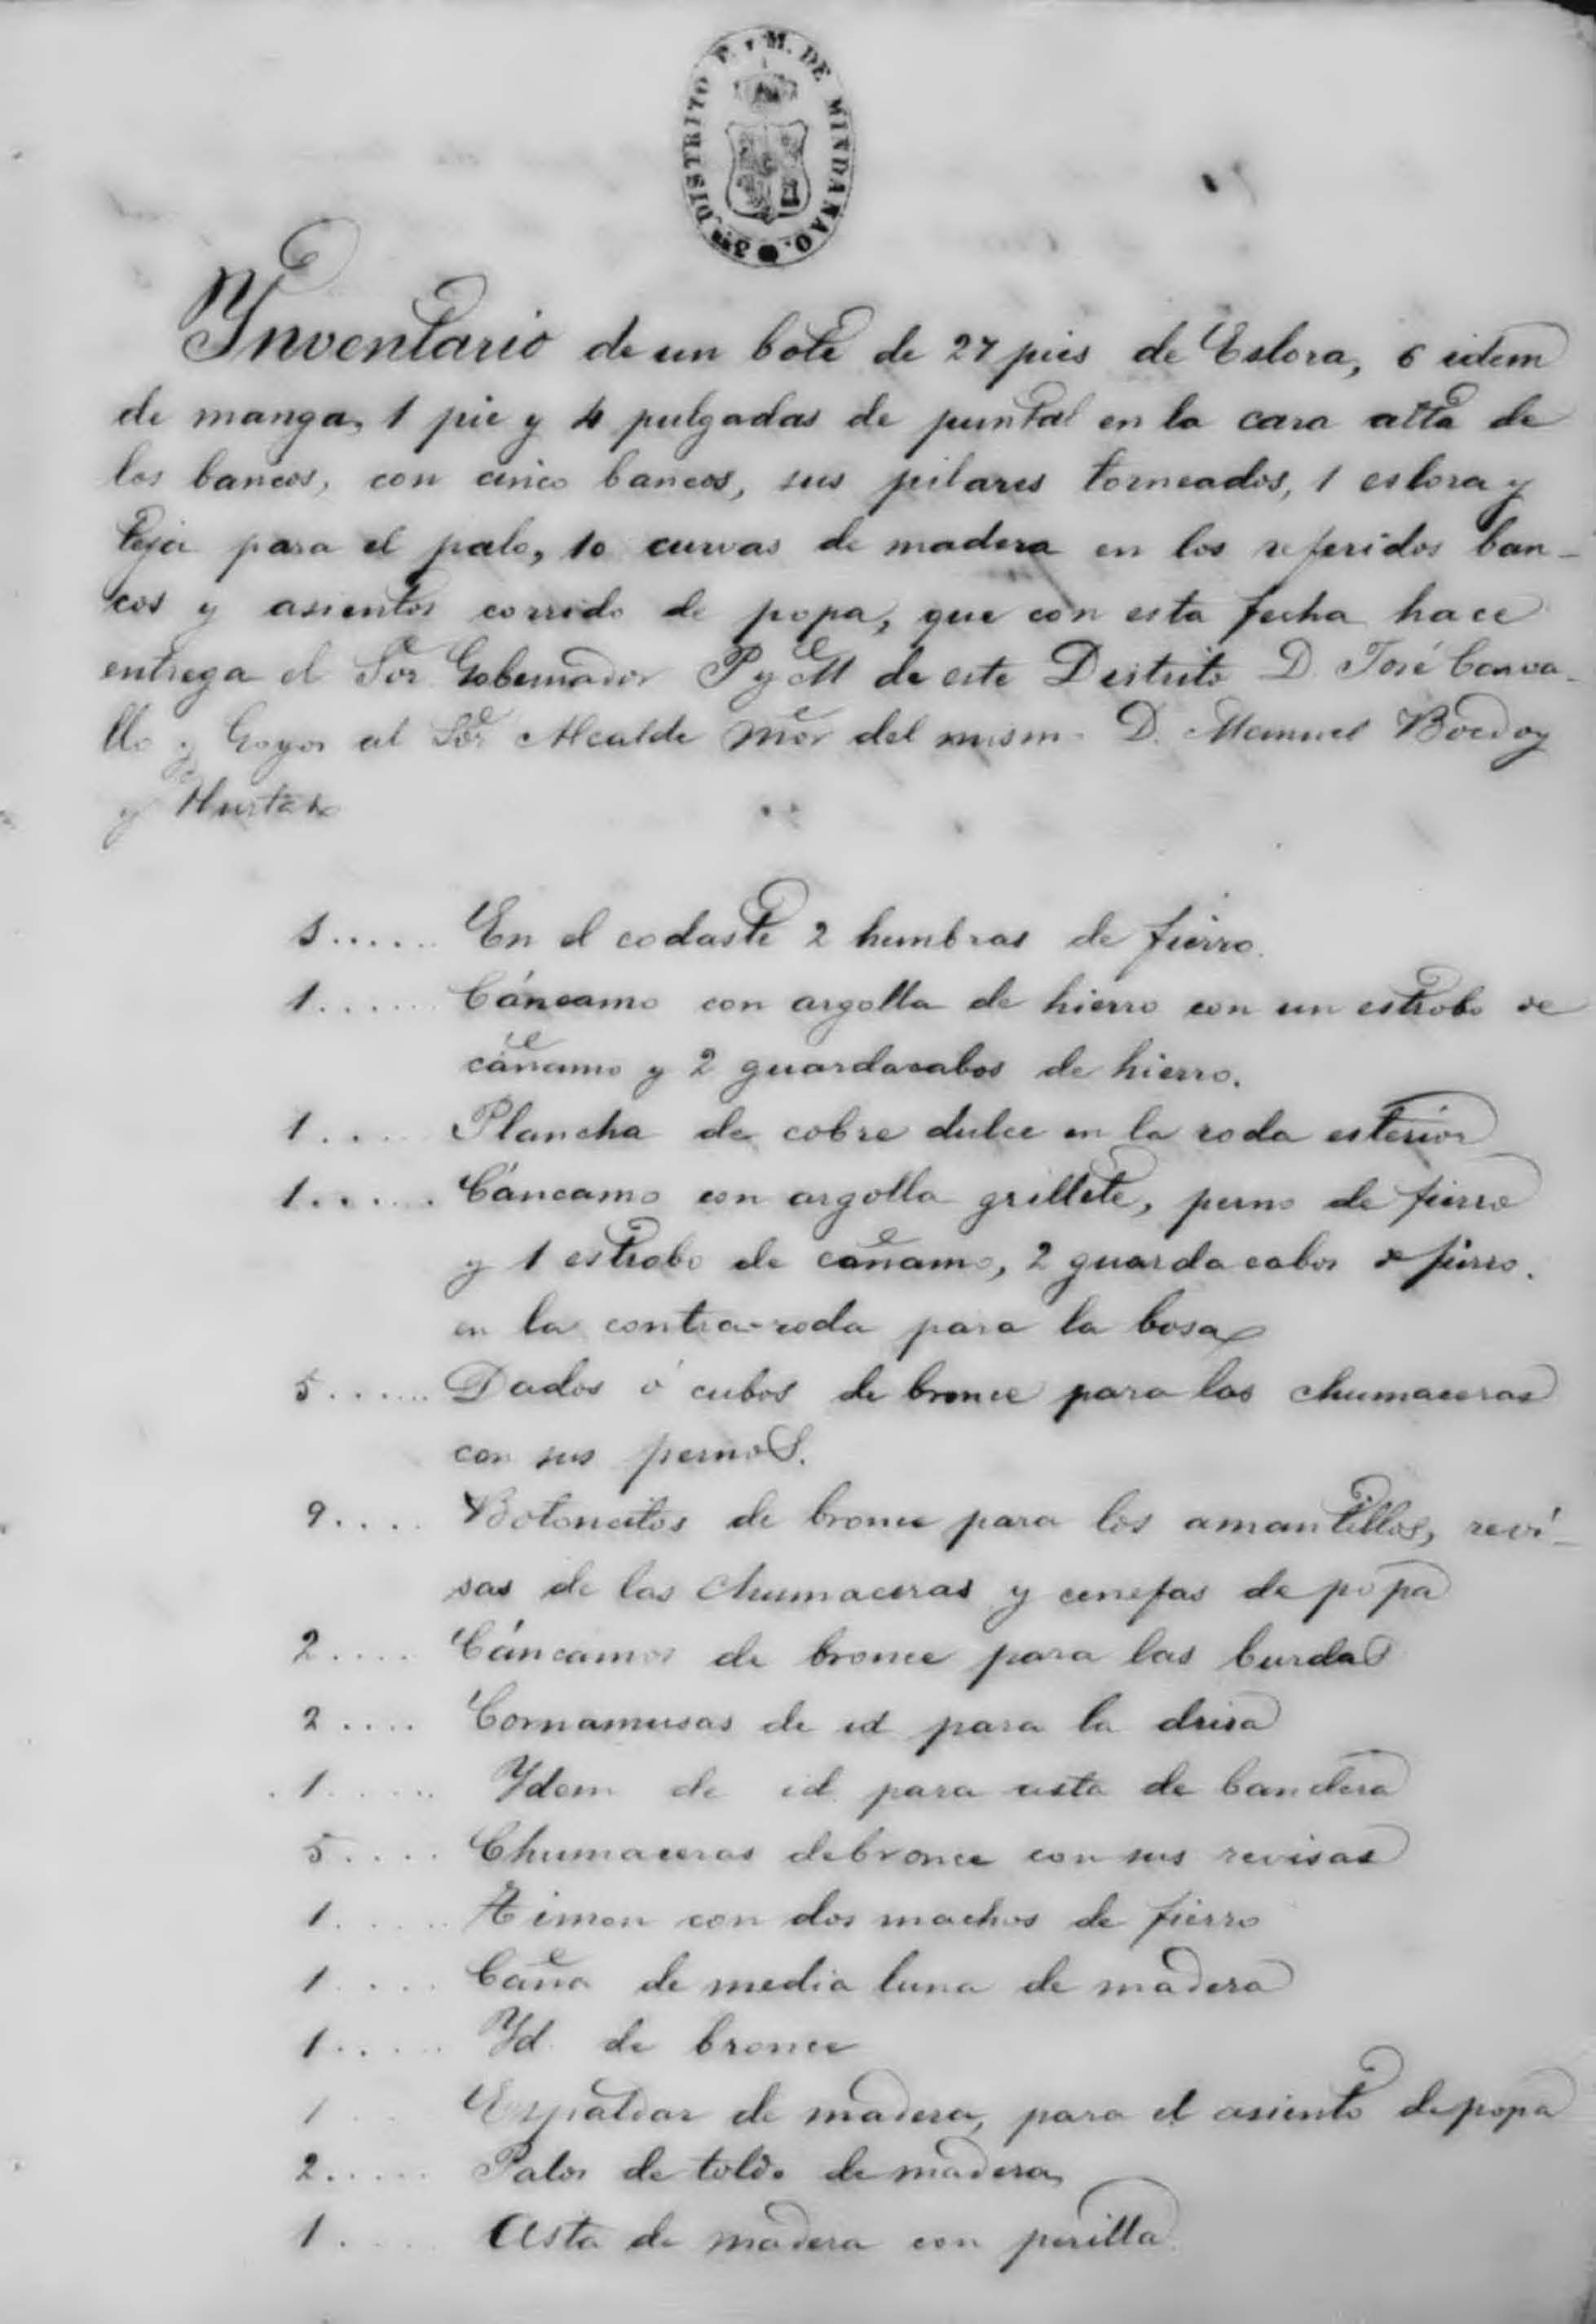 DISTRITO P. y M. DE MINDANAO.
Ynventario de un bote de 27 pies de Eslora, 6 idem
de manga, 1 pie y 4 pulgadas de puntal en la cara alta de
los bancos, con cinco bancos, sus pilares torneados, 1 eslora y
teja para el palo, 10 curvas de madera en los referidos ban-
cos y asientos corrido de popa, que con esta fecha hace
entrega el Sor Gobernador P y M de este Distrito D. José Carva-
llo y Goyos al Sor Alcalde mor del mismo D. Manuel
y Hurtado
1..... En el codaste 2 hembras de fierro.
1...... Cáncamo con argolla de hierro con un estrobo de
cáñamo y 2 guardacabos de hierro.
1.... Plancha de cobre dulce en la roda esterior
1..... Cáncamo con argolla grillete, perno de fierro
y 1 estrobo de cañamo, 2 guarda cabos de fierro.
en la contra-roda para la bosa
5...... Dados ó cubos de bronce para las chumaceras
con sus pernos.
9.... Botoncitos de bronce para los amantillos, reví-
sas de las chumaceras y cenefas de popa
2.... Cáncamos de bronce para las burdas
2.... Cornamusas de id para la drisa
1..... Ydem de id para asta de bandera
5.... Chumaceras de bronce con sus revisas
1..... Timon con dos machos de fierro
1.... Caña de media luna de madera
1..... Yd. de bronce
1.. Espaldar de madera, para el asiento de popa
2..... Palos de toldo de madera
1.... Asta de madera con perilla